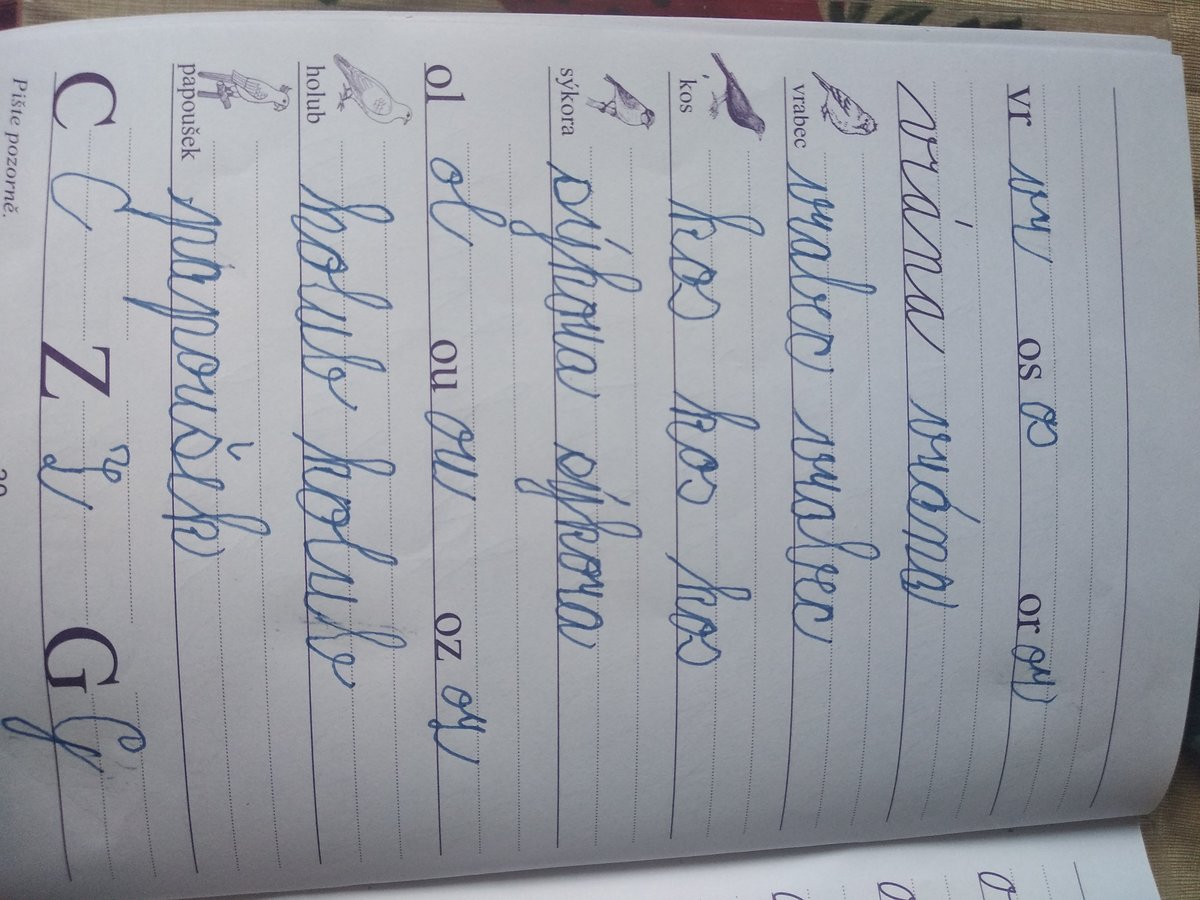 vr vr os os or or
vrána vrána
vrabec vrabec vrabec
kos kos kos kos
sýkora sýkora sýkora
ol ol ou ou oz oz
holub holub holub
papoušek papoušek
C C Z Z G G
Pište pozorně.